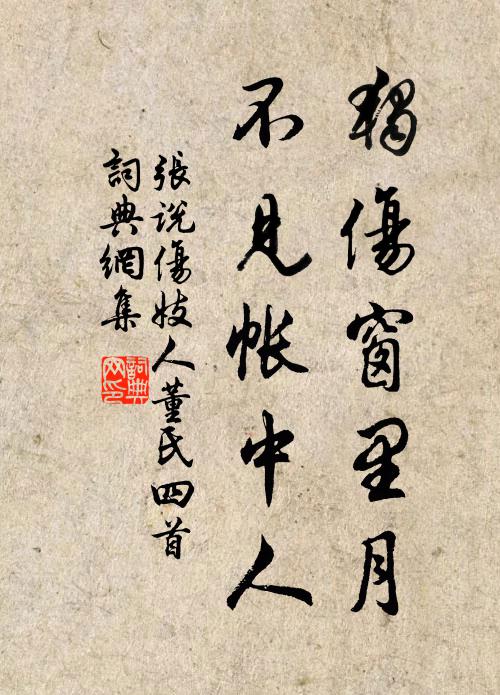 獨傷窗里月
不見帳中人
張說傷妓人董氏四首
詞典網集
詞典
網印